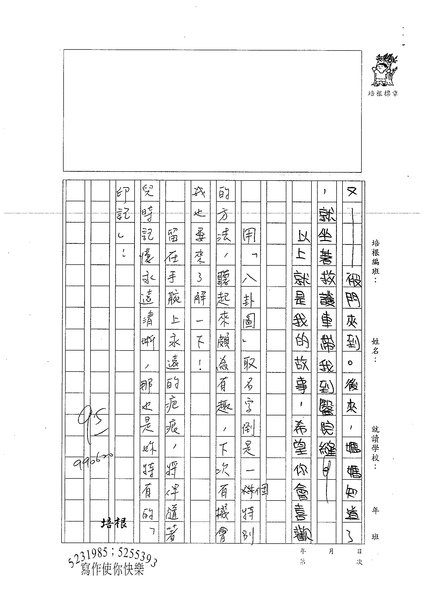 培根標章
培根編班：　姓名：　就讀學校：　年　班
年　月　日
第　次
又——被門夾到。後來，媽媽知道了
，就坐著救護車帶我到醫院縫
以上就是我的故事，希望你會喜歡
用「八卦圖」取名字倒是一個特別
的方法，聽起來頗為有趣，下次有機會
我也要來了解一下！
留在手腕上永遠的疤痕，將伴隨著
兒時記憶永遠清晰，那也是妳特有的「
印記」！
95
990620
培根
5231985；5255393
寫作使你快樂